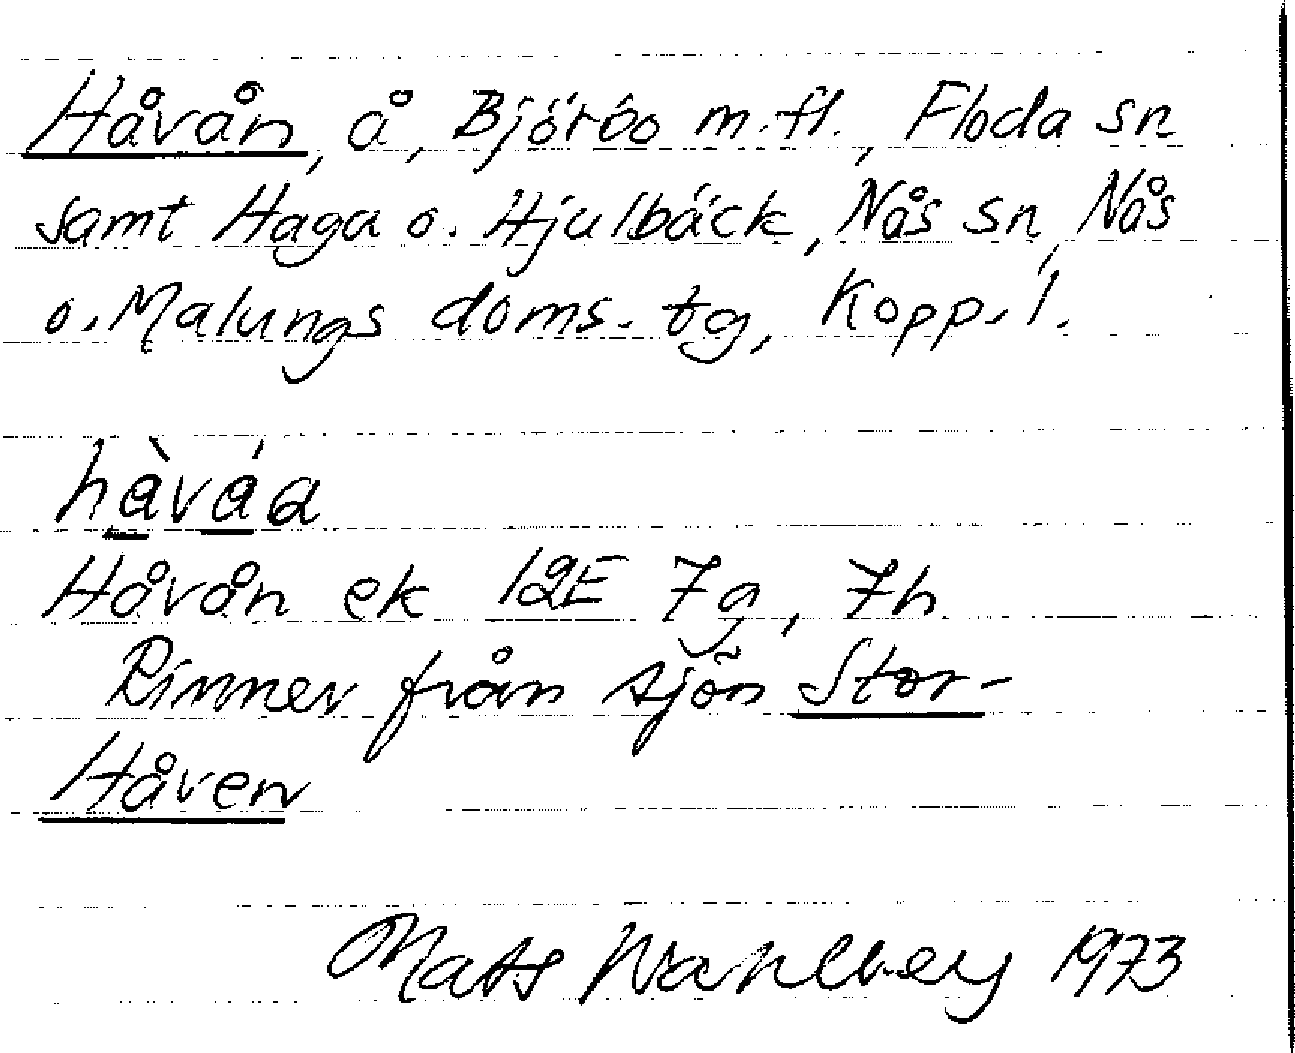 Håvån, å, Björbo m.fl., Floda sn
samt Haga o. Hjulbäck, Nås sn, Nås
o. Malungs doms. tg, Kopp. l.
hàváa
Håvån ek 12E 7g, 7h
Rinner från sjön Stor-
Håven
Mats Wahlberg 1973